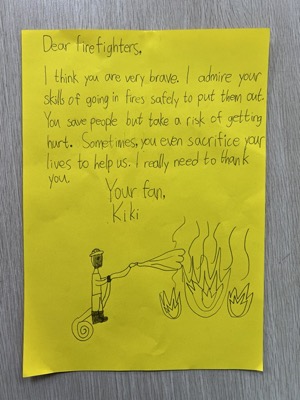 Dear firefighters,
I think you are very brave. I admire your
skills of going in fires safely to put them out.
You save people but take a risk of getting
hurt. Sometimes, you even sacrifice your
lives to help us. I really need to thank
you.
Your fan,
Kiki